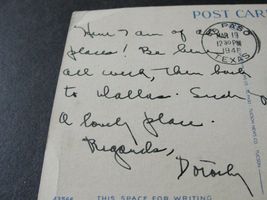 POST CARD
EL PASO
MAR 19
12 30 PM
1948
TEXAS
Here I am of all
places! Be here
all week, then back
to Dallas. Such
a lovely place.
Regards,
Dorothy
43566 THIS SPACE FOR WRITING